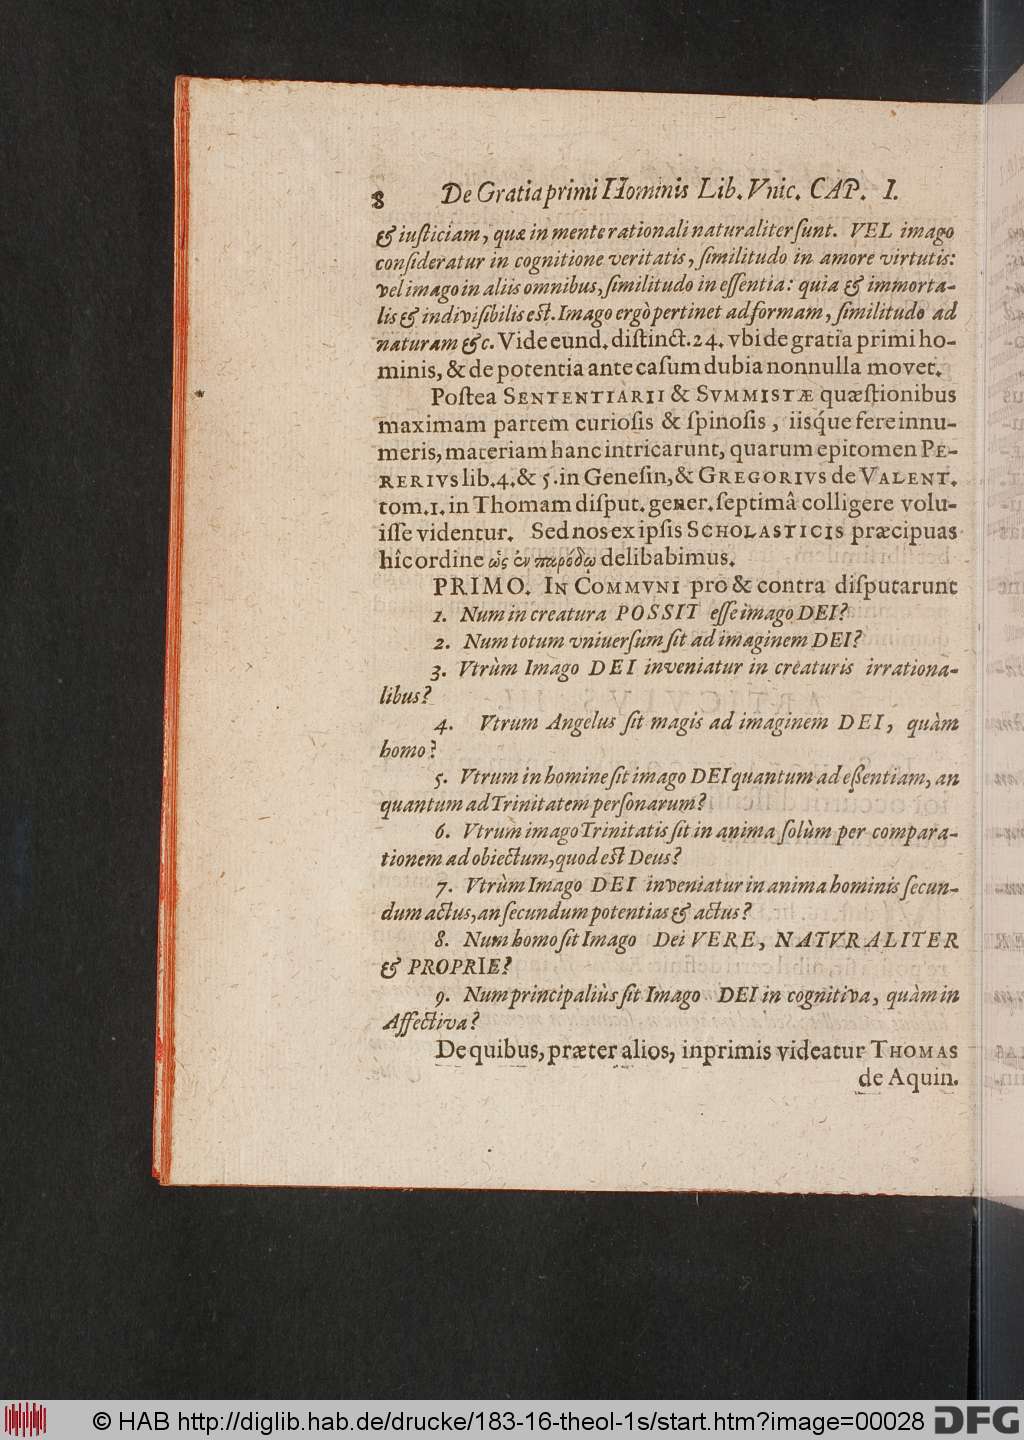 8 De Gratia primi Hominis Lib. Vnic. CAP. I.
& iusticiam, quæ in mente rationali naturaliter sunt. VEL imago
consideratur in cognitione veritatis, similitudo in amore virtutis:
vel imago in aliis omnibus, similitudo in essentia: quia & immorta-
lis & indivisibilis est. Imago ergò pertinet ad formam, similitudo ad
naturam &c. Vide eund. distinct. 24. vbi de gratia primi ho-
minis, & de potentia ante casum dubia nonnulla movet.
Postea SENTENTIARII & SVMMISTÆ quæstionibus
maximam partem curiosis & spinosis, iisq́ue fere innu-
meris, materiam hanc intricarunt, quarum epitomen PE-
RERIVS lib. 4. & 5. in Genesin, & GREGORIVS de VALENT.
tom. 1. in Thomam disput. gener. septimâ colligere volu-
isse videntur. Sed nos ex ipsis SCHOLASTICIS præcipuas
hîc ordine ὡς ἐν παρόδῳ delibabimus.
PRIMO. IN COMMVNI pro & contra disputarunt
1. Num in creatura POSSIT esse imago DEI?
2. Num totum vniuersum sit ad imaginem DEI?
3. Vtrùm Imago DEI inveniatur in creaturis irrationa-
libus?
4. Vtrum Angelus sit magis ad imaginem DEI, quàm
homo?
5. Vtrum in homine sit imago DEI quantum ad eßentiam, an
quantum ad Trinitatem personarum?
6. Vtrùm imago Trinitatis sit in anima solùm per compara-
tionem ad obiectum, quod est Deus?
7. Vtrùm Imago DEI inveniatur in anima hominis secun-
dum actus, an secundum potentias & actus?
8. Num homo sit Imago Dei VERE, NATVRALITER
& PROPRIE?
9. Num principaliùs sit Imago DEI in cognitiva, quàm in
Affectiva?
De quibus, præter alios, inprimis videatur THOMAS
de Aquin.
© HAB http://diglib.hab.de/drucke/183-16-theol-1s/start.htm?image=00028 DFG